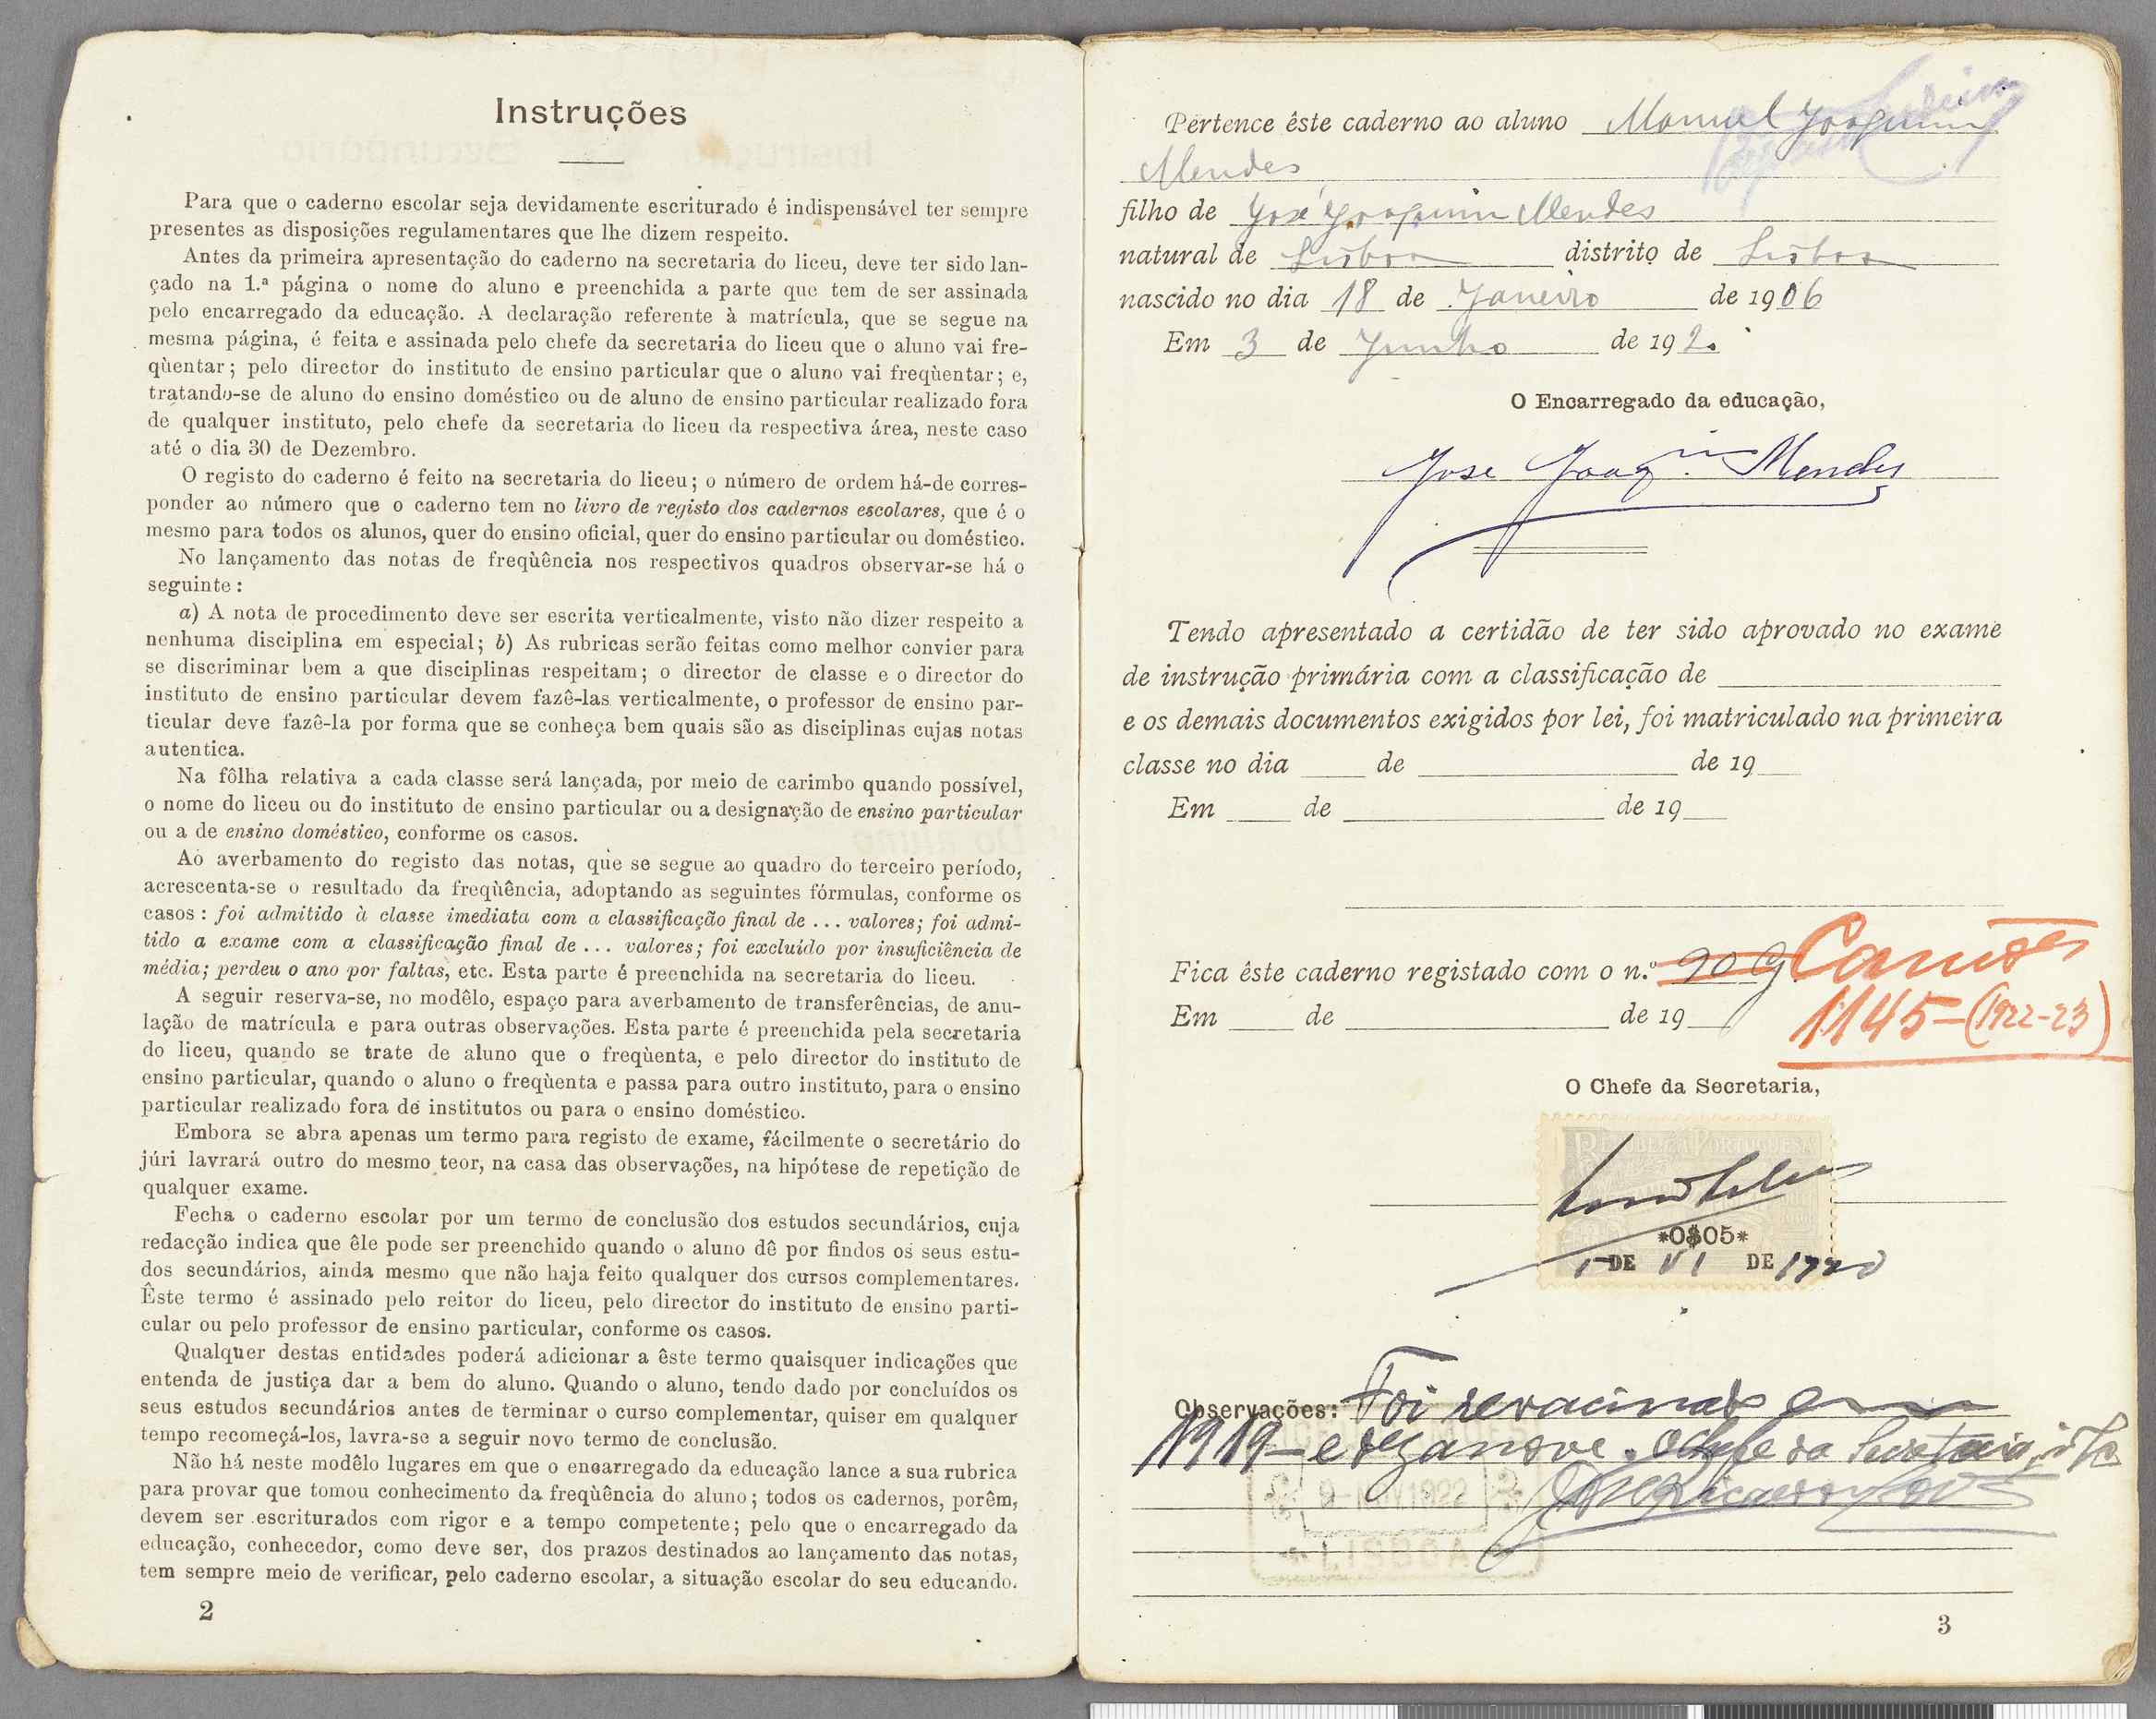 Instruções
Para que o caderno escolar seja devidamente escriturado é indispensável ter sempre
presentes as disposições regulamentares que lhe dizem respeito.
Antes da primeira apresentação do caderno na secretaria do liceu, deve ter sido lan-
çado na 1.ª página o nome do aluno e preenchida a parte que tem de ser assinada
pelo encarregado da educação. A declaração referente à matrícula, que se segue na
mesma página, é feita e assinada pelo chefe da secretaria do liceu que o aluno vai fre-
qùentar; pelo director do instituto de ensino particular que o aluno vai freqùentar; e,
tratando-se de aluno do ensino doméstico ou de aluno de ensino particular realizado fora
de qualquer instituto, pelo chefe da secretaria do liceu da respectiva área, neste caso
até o dia 30 de Dezembro.
O registo do caderno é feito na secretaria do liceu; o número de ordem há-de corres-
ponder ao número que o caderno tem no livro de registo dos cadernos escolares, que é o
mesmo para todos os alunos, quer do ensino oficial, quer do ensino particular ou doméstico.
No lançamento das notas de freqùência nos respectivos quadros observar-se há o
seguinte:
a) A nota de procedimento deve ser escrita verticalmente, visto não dizer respeito a
nenhuma disciplina em especial; b) As rubricas serão feitas como melhor convier para
se discriminar bem a que disciplinas respeitam; o director de classe e o director do
instituto de ensino particular devem fazê-las verticalmente, o professor de ensino par-
ticular deve fazê-la por forma que se conheça bem quais são as disciplinas cujas notas
autentica.
Na fôlha relativa a cada classe será lançada, por meio de carimbo quando possível,
o nome do liceu ou do instituto de ensino particular ou a designação de ensino particular
ou a de ensino doméstico, conforme os casos.
Ao averbamento do registo das notas, que se segue ao quadro do terceiro período,
acrescenta-se o resultado da freqùência, adoptando as seguintes fórmulas, conforme os
casos: foi admitido à classe imediata com a classificação final de ... valores; foi admi-
tido a exame com a classificação final de ... valores; foi excluído por insuficiência de
média; perdeu o ano por faltas, etc. Esta parte é preenchida na secretaria do liceu.
A seguir reserva-se, no modêlo, espaço para averbamento de transferências, de anu-
lação de matrícula e para outras observações. Esta parte é preenchida pela secretaria
do liceu, quando se trate de aluno que o freqùenta, e pelo director do instituto de
ensino particular, quando o aluno o freqùenta e passa para outro instituto, para o ensino
particular realizado fora de institutos ou para o ensino doméstico.
Embora se abra apenas um termo para registo de exame, fácilmente o secretário do
júri lavrará outro do mesmo teor, na casa das observações, na hipótese de repetição de
qualquer exame.
Fecha o caderno escolar por um termo de conclusão dos estudos secundários, cuja
redacção indica que êle pode ser preenchido quando o aluno dê por findos os seus estu-
dos secundários, ainda mesmo que não haja feito qualquer dos cursos complementares.
Êste termo é assinado pelo reitor do liceu, pelo director do instituto de ensino parti-
cular ou pelo professor de ensino particular, conforme os casos.
Qualquer destas entidades poderá adicionar a êste termo quaisquer indicações que
entenda de justiça dar a bem do aluno. Quando o aluno, tendo dado por concluídos os
seus estudos secundários antes de terminar o curso complementar, quiser em qualquer
tempo recomeçá-los, lavra-se a seguir novo termo de conclusão.
Não há neste modêlo lugares em que o encarregado da educação lance a sua rubrica
para provar que tomou conhecimento da freqùência do aluno; todos os cadernos, porêm,
devem ser escriturados com rigor e a tempo competente; pelo que o encarregado da
educação, conhecedor, como deve ser, dos prazos destinados ao lançamento das notas,
tem sempre meio de verificar, pelo caderno escolar, a situação escolar do seu educando.
2
Pertence êste caderno ao aluno Manuel Joaquim
Mendes
filho de José Joaquim Mendes
natural de Lisboa distrito de Lisboa
nascido no dia 18 de Janeiro de 1906
Em 3 de Junho de 192
O Encarregado da educação,
Jose Joaqim Mendes
Tendo apresentado a certidão de ter sido aprovado no exame
de instrução primária com a classificação de
e os demais documentos exigidos por lei, foi matriculado na primeira
classe no dia de de 19
Em de de 19
Fica êste caderno registado com o n.º 90 g Camões
Em de de 19 1145-(1922-23)
O Chefe da Secretaria,
REPUBLICA PORTUGUESA
*0$05*
DE VI DE 1920
Observações: Foi revacinado em
1919-e dezanove. O Chefe da Secretaria,
9-MAI 1922
LISBOA
3